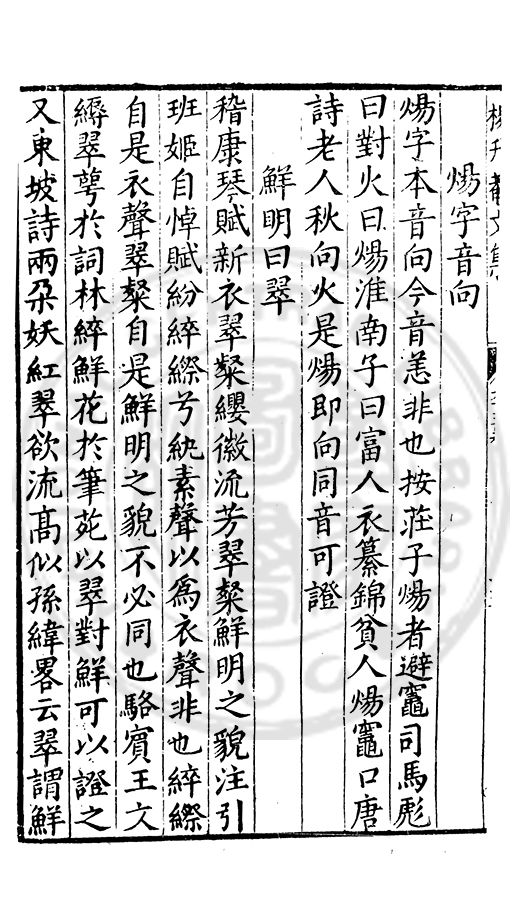 煬字音向
煬字本音向今音恙非也按莊子煬者避竈司馬彪
曰對火曰煬淮南子曰富人衣纂錦貧人煬竈口唐
詩老人秋向火是煬即向同音可證
鮮明曰翠
稽康琴賦新衣翠粲纓徽流芳翠粲鮮明之貌注引
班姬自悼賦紛綷縩兮紈素聲以爲衣聲非也綷縩
自是衣聲翠粲自是鮮明之貌不必同也駱賓王文
縟翠萼於詞林綷鮮花於筆苑以翠對鮮可以證之
又東坡詩兩朶妖紅翠欲流高似孫緯畧云翠謂鮮